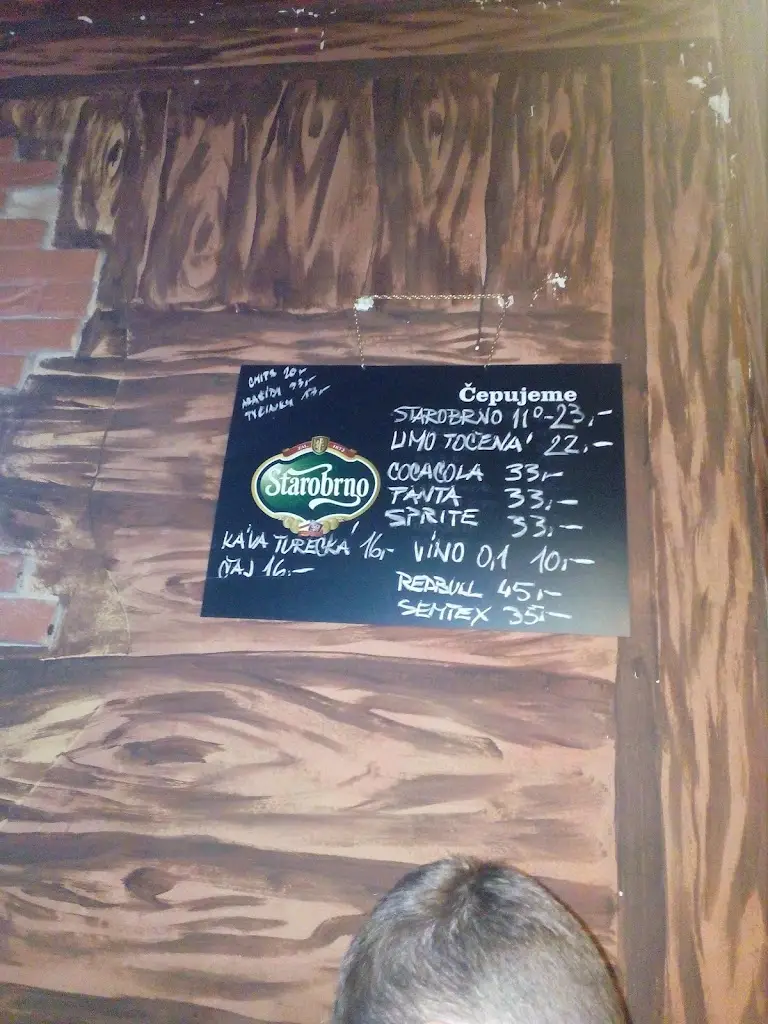 CHIPS 20,-
ARAŠÍDY 33,-
TYČINKY
Čepujeme
STAROBRNO 11°-23,-
LIMO TOČENÁ 22,-
COCACOLA 33,-
FANTA 33,-
SPRITE 33,-
Starobrno
KÁVA TURECKÁ 16,-
ČAJ 16.-
VÍNO 0,1 10,-
REDBULL 45,-
SEMTEX 35,-